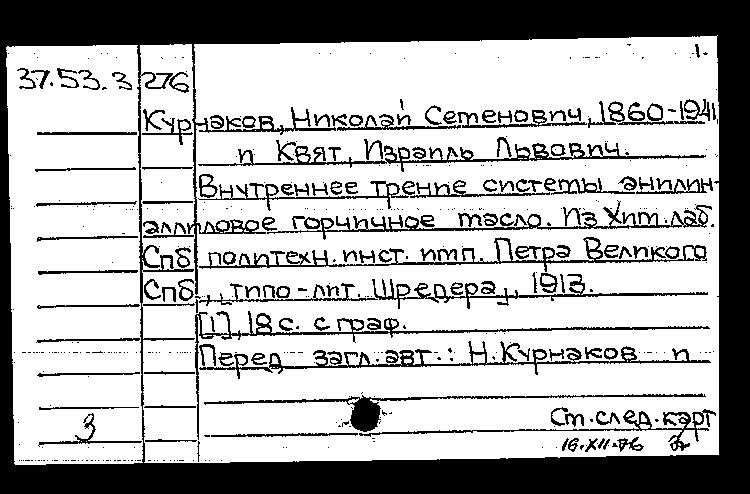 1.
37.53.3 276
Курнаков, Николай Семенович, 1860-1941
и Квят, Израиль Львович.
Внутреннее трение системы анилин-
аллиловое горчичное масло. Из Хим. лаб.
Спб политехн. инст. имп. Петра Великого
Спб, „типо-лит. Шредера„, 1913.
[1], 18 с. с граф.
Перед загл. авт.: Н.Курнаков и
3
См. след. карт
16.XII-76